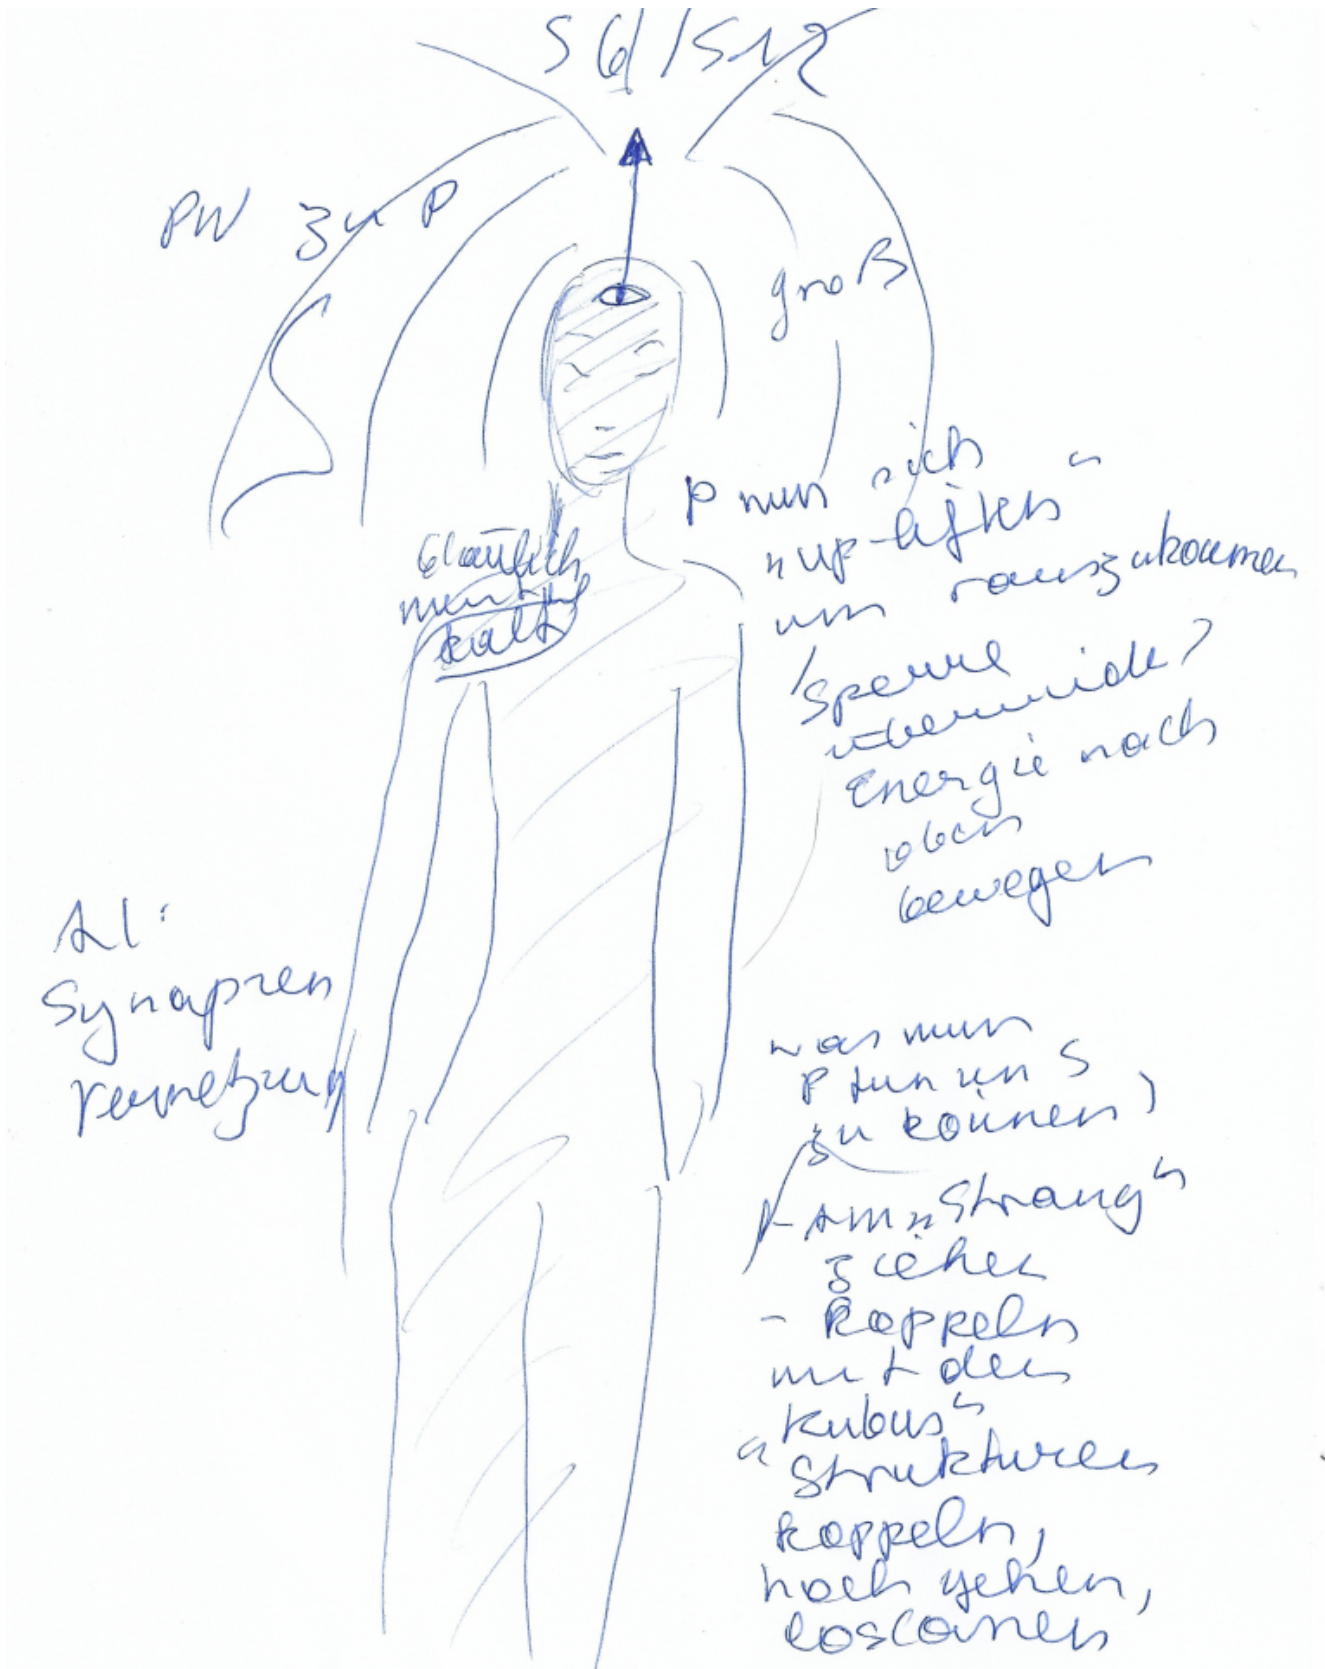 S6/S12
PW zu P
groß
P muss sich
"up-liften"
um rauszukommen
Sperre
überwinden?
Energie nach
oben
bewegen
bläulich
kalt
AI:
Synapsen
Vernetzung
was muss
P tun um S
zu können?
- Am "Strang"
ziehen
- koppeln
mit den
"Kubus"
Strukturen
koppeln,
hoch gehen,
loslassen